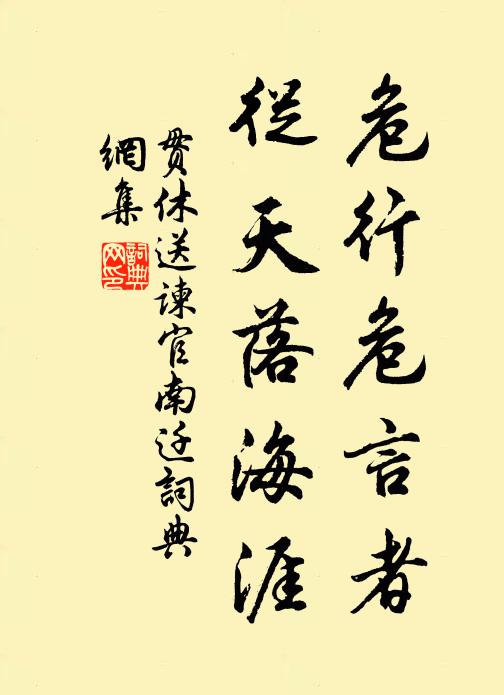 危行危言者
從天落海涯
貫休送諫官南迁詞典
網集
詞典
网印